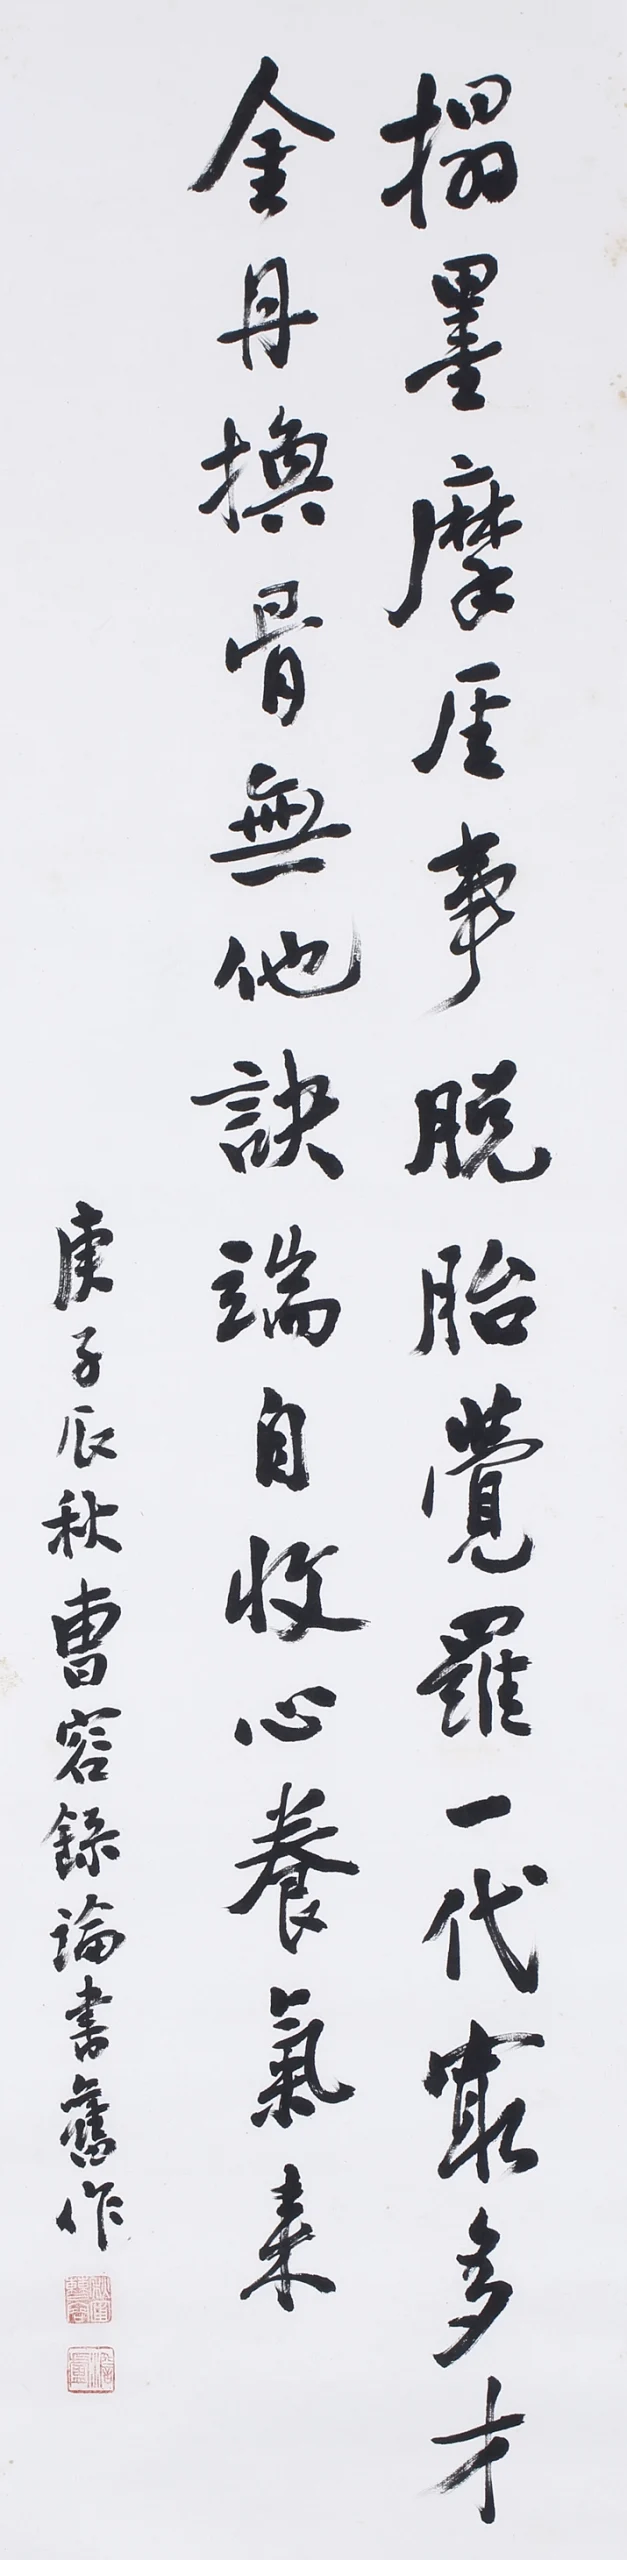 搨墨摩厓事脱胎覺羅一代寂多才
金丹換骨無他訣端自收心養氣来
庚子辰秋曹容錄論書舊作